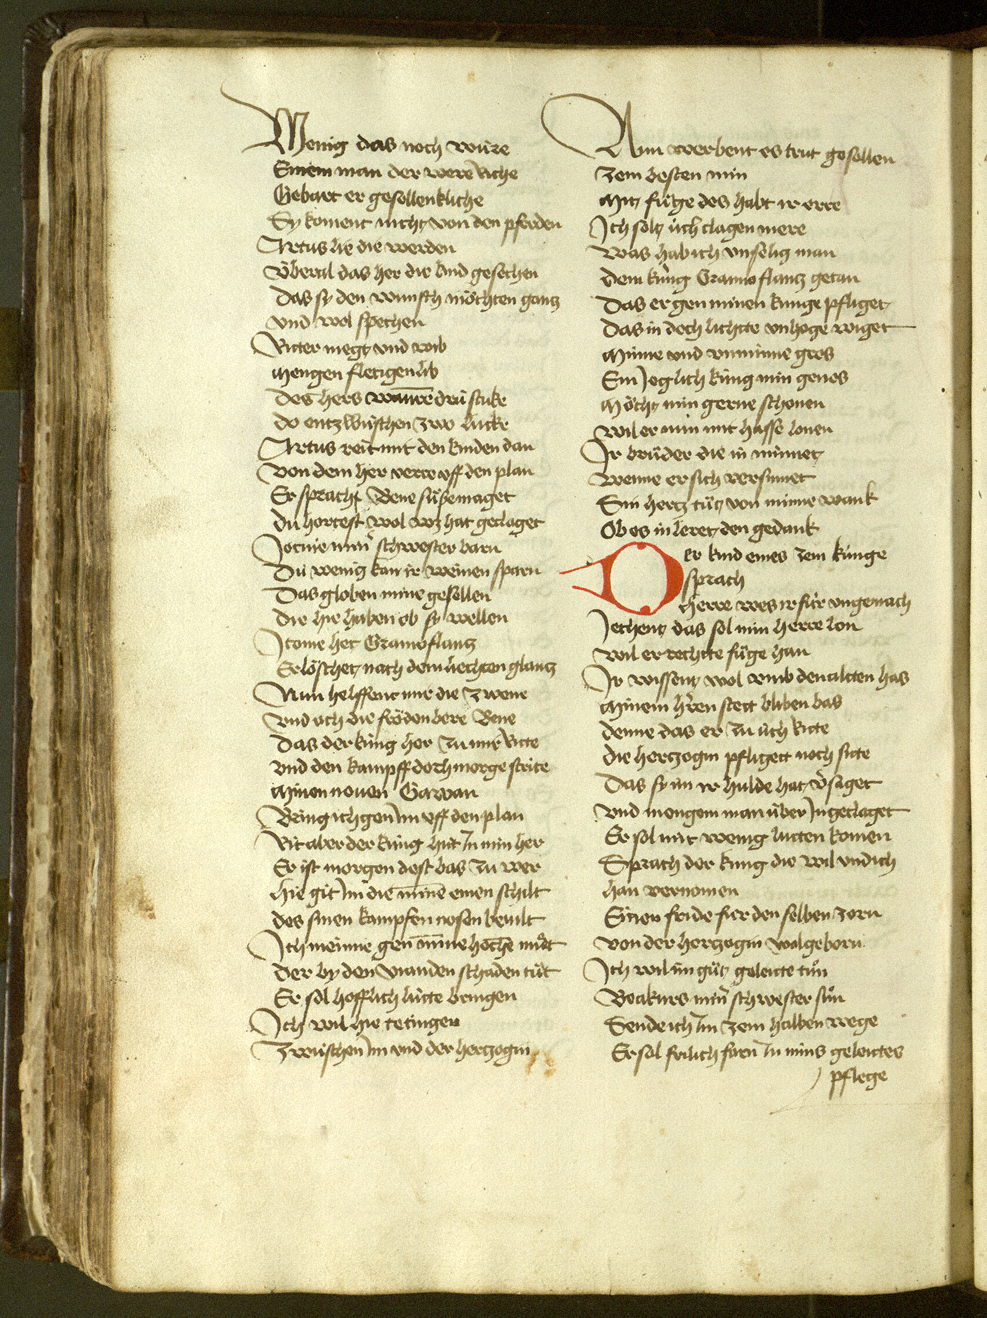 Wenig das noch wurze
Sinem man der were riche
Gebart er gesellenkliche
Sy koment nicht von den pferden
Artus lie die werden
Vberal das her die kind gesechen
Das sy den wunsch mochten gantz
vnd wol spechen
Ritter megt vnd wib
Mengen fletigen lib
Des hers warent dru stuke
do entzwuschen zwo lucke
Artus reit mit den kinden dan
Von dem her verre vff den plan
Er sprach Bene süsse maget
du hortest wol wz hat geclaget
Jtonie min schwester barn
Du wenig kan ir weinen sparn
Das globen mine gesellen
die hie haben ob sy wellen
Jtonie het Gramoflantz
Erlöschet nach dem liechten glantz
Nun helffent mir die zwene
vnd och die fröden bere Bene
Das der küng her zu mir ritte
vnd den kampff doch morge stritte
Minen neuen Gawan
Bring ich gen Jm vff den plan
Rit aber der küng hut Jn min her
Er ist morgen dest bas zu wer
hie git Jm die mine einen schilt
des sinen kampfen nosen beuilt
Jch meinne gen mine hoche mut
der by den vianden schaden tut
Er sol hofflich lutte bringen
Jch wil hie tetingen
Zwuschen Jm vnd der hertzogin
Nun werbent es trut gesellen
zem besten min
Mitz füge des habt ir erre
Jch soltz üch clagen mere
Was hab ich vnselig man
dem küng Gramoflantz getan
Das er gen minen kunge pfliget
Das in doch lichtte vnhoge wiget
Minne vnd vnminne gros
Ein Jeglich küng min genos
Möcht min gerne schonen
wil er min mit hasse lonen
Jr brüder die in minnet
Wenne er sich versinnet
Sin hertz tütz von minne wank
Ob es in leret den gedank
Der kind eines zem künge
sprach
herre wes ir für vngemach
Jechent das sol min herre lon
wil er rechtte füge han
Jr wissent wol vmb den altten has
Minem hren stett bliben bas
denne das er zu üch ritte
die hertzogin pfliget noch sitte
Das sy im ir hulde hat vsaget
vnd mengem man über Jn geclaget
Er sol mit wenig lütten komen
Sprach der küng die wil vnd ich
han vernomen
Einen fride für den selben zorn
von der hertzogin wolgeborn
Jch wil im gütz geleitte tun
Beakurs min schwester sun
Sende ich Jm zem halben wege
Er sol frilich farn Jn mins geleittes
pflege